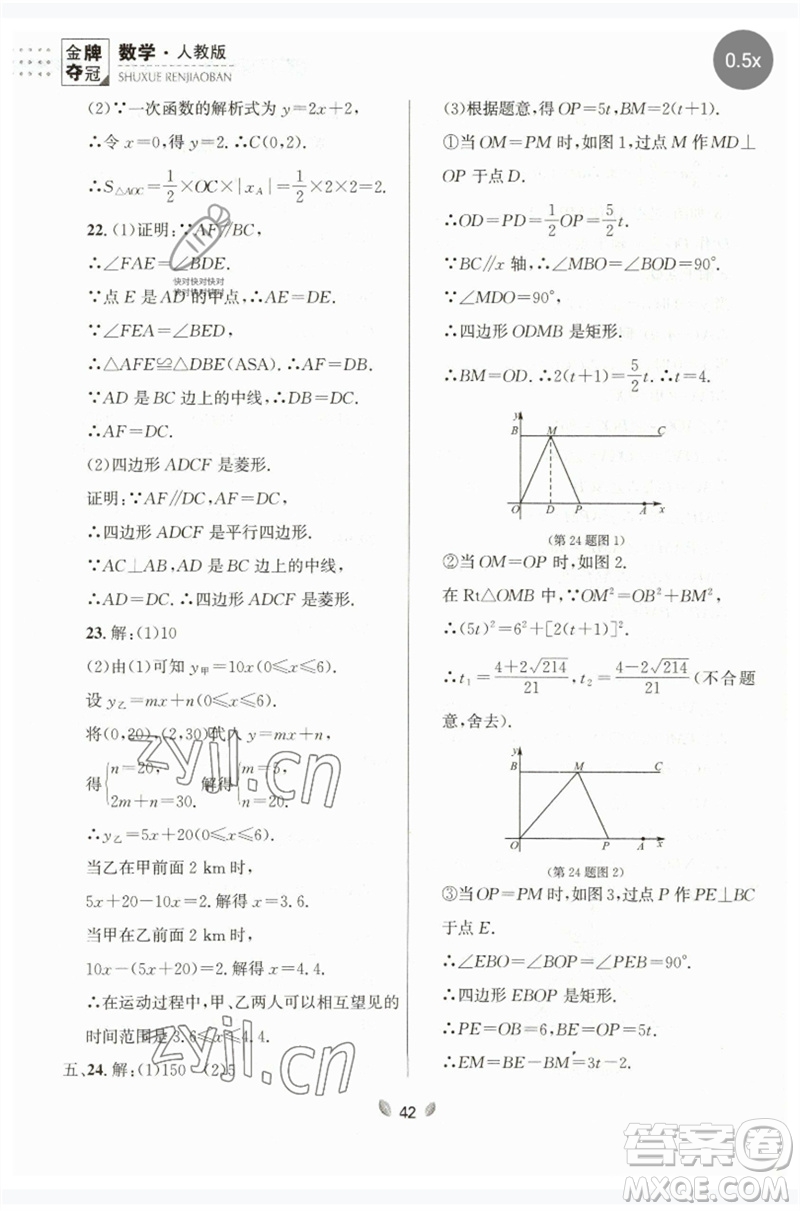 金牌夺冠 数学·人教版
SHUXUE RENJIAOBAN
0.5x
(2)∵一次函数的解析式为 y=2x+2,
∴令 x=0,得 y=2.∴C(0,2).
∴S△AOC=1/2×OC×|xA|=1/2×2×2=2.
22.(1)证明:∵AF∥BC,
∴∠FAE=∠BDE.
∵点 E 是 AD 的中点,∴AE=DE.
∵∠FEA=∠BED,
∴△AFE≌△DBE(ASA).∴AF=DB.
∵AD 是 BC 边上的中线,∴DB=DC.
∴AF=DC.
(2)四边形 ADCF 是菱形.
证明:∵AF∥DC,AF=DC,
∴四边形 ADCF 是平行四边形.
∵AC⊥AB,AD 是 BC 边上的中线,
∴AD=DC.∴四边形 ADCF 是菱形.
23.解:(1)10
(2)由(1)可知 y甲=10x(0≤x≤6).
设 y乙=mx+n,
将(0,20),(2,30)代入 y=mx+n,
得{n=20, 2m+n=30. 解得{m=5, n=20.
∴y乙=5x+20(0≤x≤6).
当乙在甲前面 2 km 时,
5x+20-10x=2.解得 x=3.6.
当甲在乙前面 2 km 时,
10x-(5x+20)=2.解得 x=4.4.
∴在运动过程中,甲、乙两人可以相互望见的
时间范围是 3.6≤x≤4.4.
五、24.解:(1)150 (2)5
(3)根据题意,得 OP=5t,BM=2(t+1).
①当 OM=PM 时,如图 1,过点 M 作 MD⊥
OP 于点 D.
∴OD=PD=1/2OP=5/2t.
∵BC∥x 轴,∴∠MBO=∠BOD=90°.
∵∠MDO=90°,
∴四边形 ODMB 是矩形.
∴BM=OD.∴2(t+1)=5/2t.∴t=4.
y
B M C
O D P A x
(第 24 题图 1)
②当 OM=OP 时,如图 2.
在 Rt△OMB 中,∵OM²=OB²+BM²,
∴(5t)²=6²+[2(t+1)]².
∴t₁=(4+2√214)/21,t₂=(4-2√214)/21(不合题
意,舍去).
y
B M C
O P A x
(第 24 题图 2)
③当 OP=PM 时,如图 3,过点 P 作 PE⊥BC
于点 E.
∴∠EBO=∠BOP=∠PEB=90°.
∴四边形 EBOP 是矩形.
∴PE=OB=6,BE=OP=5t.
∴EM=BE-BM=3t-2.
42
快对快对快对
快对快对快对
zyjl.cn
zyjl.cn
答案圈
MMDAAN.COM